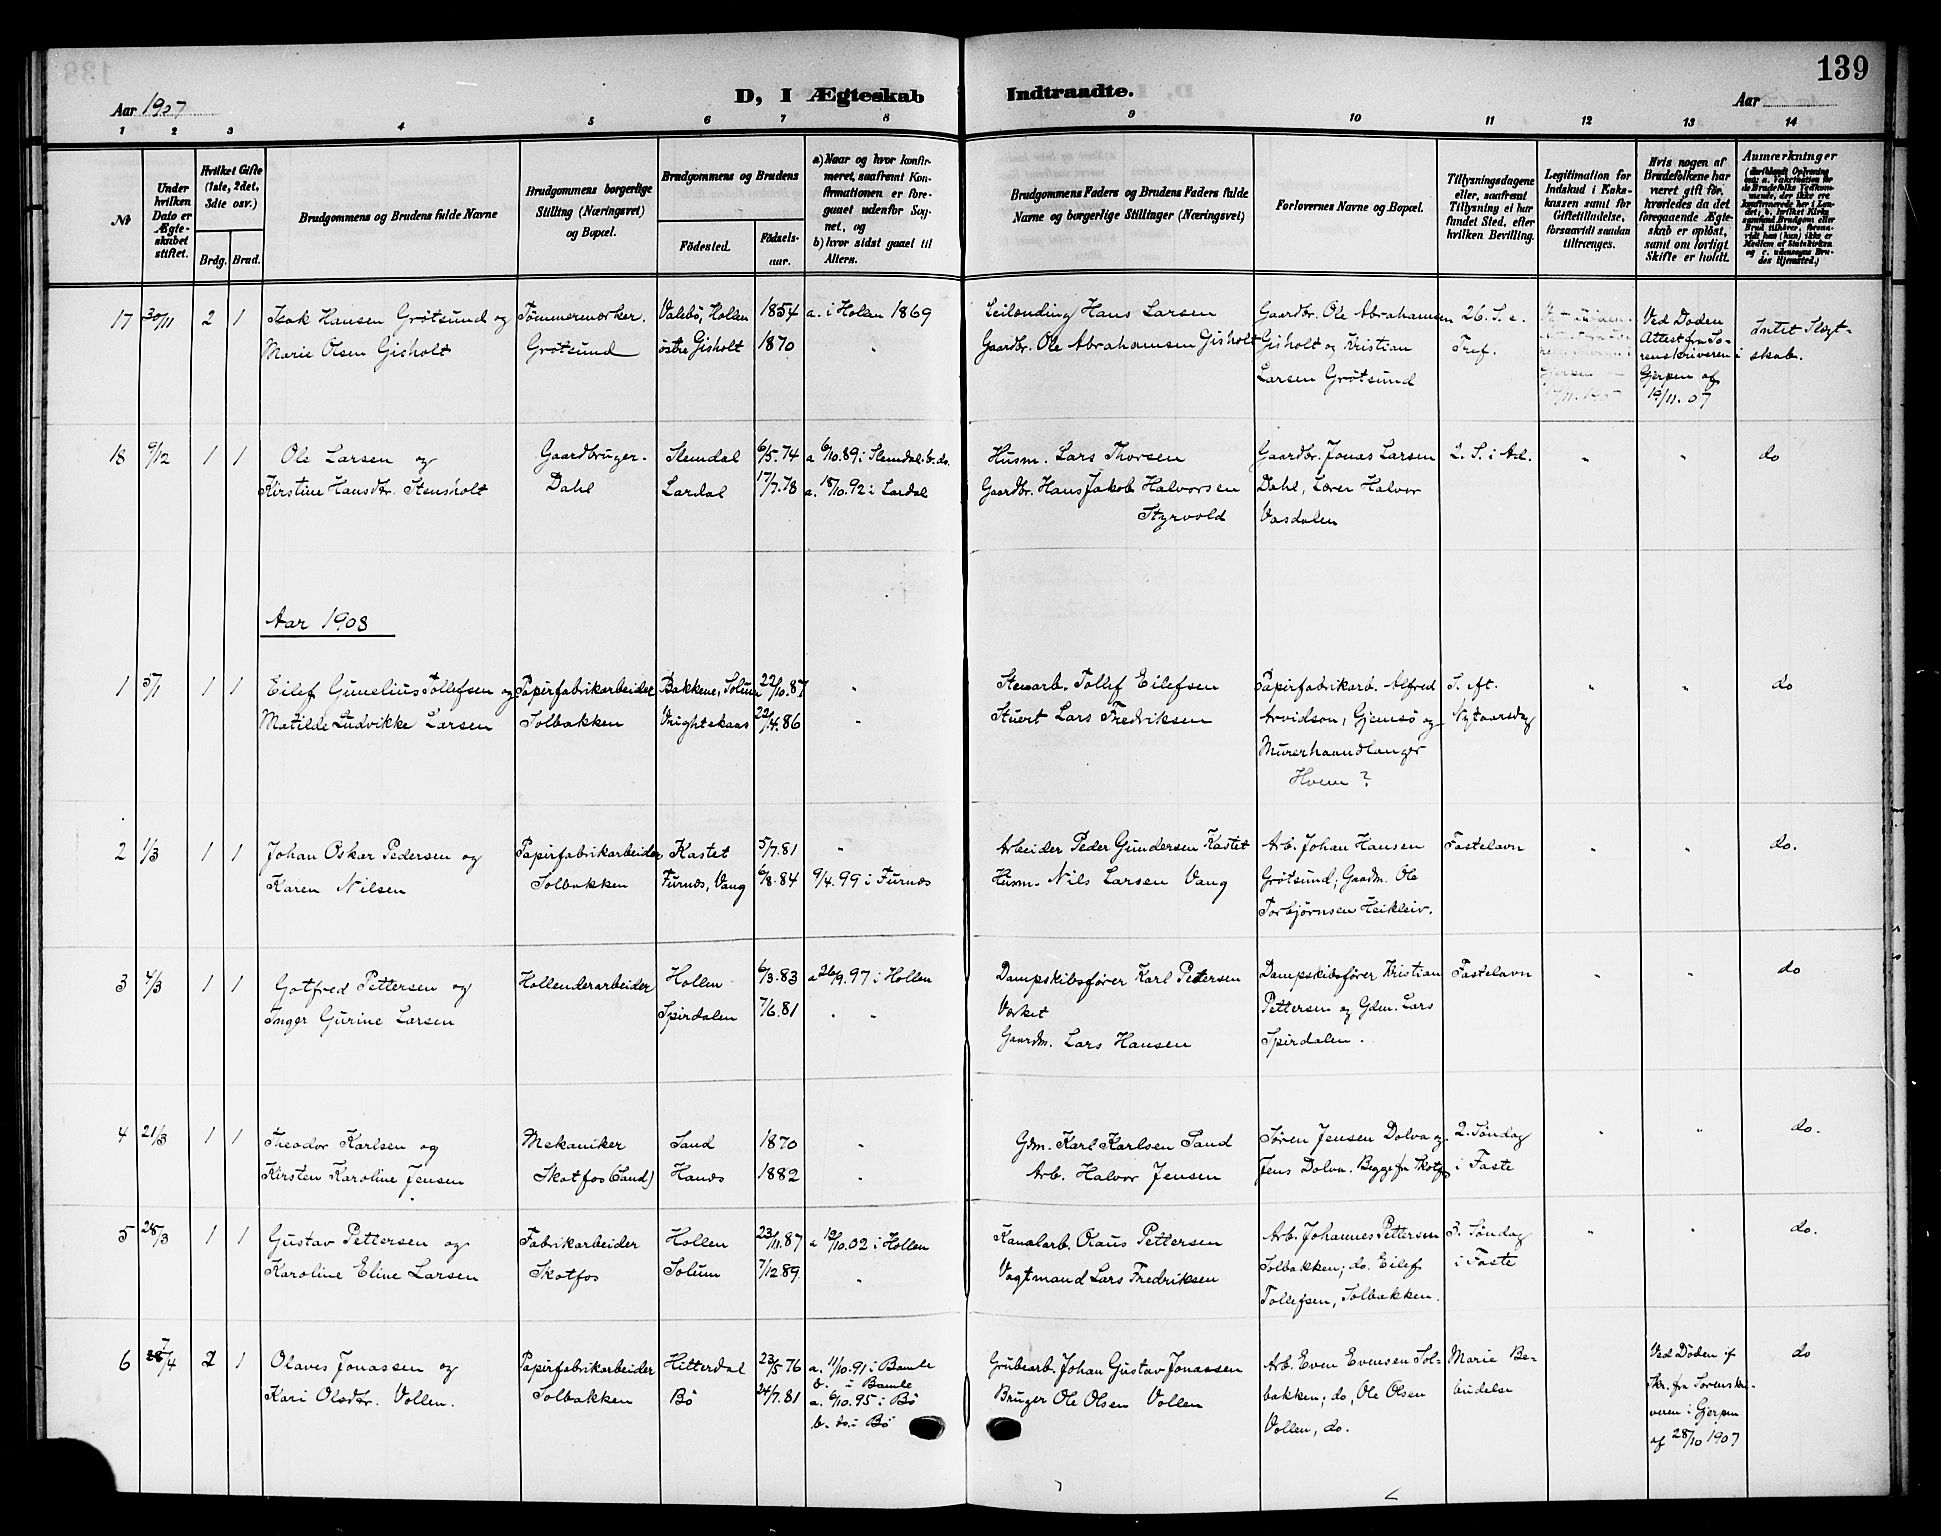 139
Aar 1907
D, I Ægteskab Indtraadte.
Aar
1 2 3 4 5 6 7 8 9 10 11 12 13 14
№
Under hvilken Dato er Ægteskabet stiftet.
Hvilket Gifte (1ste, 2det, 3die osv.)
Brdg. Brud.
Brudgommens og Brudens fulde Navne
Brudgommens borgerlige Stilling (Næringsvei) og Bopæl.
Brudgommens og Brudens
Fødested. Fødselsaar.
a) Naar og hvor konfirmeret, saafremt Konfirmationen er foregaaet udenfor Sognet, og
b) hvor sidst gaaet til Alters.
Brudgommens Faders og Brudens Faders fulde Navne og borgerlige Stillinger (Næringsvei)
Forlovernes Navne og Bopæl.
Tillysningsdagene eller, saafremt Tillysning ei har fundet Sted, efter hvilken Bevilling.
Legitimation for Indskud i Enkekassen samt for Giftetilladelse, forsaavidt saadan tiltrænges.
Hvis nogen af Brudefolkene har været gift før, hvorledes da det foregaaende Ægteskab er opløst, samt om lovligt Skifte er holdt.
Anmærkninger
17 30/11 2 1 Isak Hansen Grötsund og Tømmermerker. Valebö, Hollen 1854 a. i Holen 1869 Leilending Hans Larsen Gaardbr. Ole Abrahamsen 26. S. e. Ved Døden Intet Slægt-
Marie Olsen Gisholt Grötsund östre Gisholt 1870 " Gaardbr. Ole Abrahamsen Gisholt Gisholt og Kristian Tref. Attest fra So- skab.
Larsen Grötsund renskriveren i
Gjerpen af
19/11. 07
18 9/12 1 1 Ole Larsen og Gaardbruger. Slemdal 6/5.74 a 6/10.89 i Slemdal. b. do. Husm. Lars Thorsen Gaardbr. Jonas Larsen 2. S. i Ad. " " do
Kirstine Hansdtr. Stensholt Dahl Lardal 17/7.78 a. 18/10.92 i Lardal Gaardbr. Hans Jakob Halvorsen Dahl, Lærer Halvor
Styrvold Vasdalen
Aar 1908
1 5/1 1 1 Eilef Gunelius Tollefsen og Papirfabrikarbeider Bakkene, Solum 22/10.87 " Stenarb. Tollef Eilefsen Papirfabrikarb. Alfred S. eft. " " do
Matilde Ludvikke Larsen Solbakken Vrightskaas 22/4.86 " Stuert Lars Fredriksen Arvidson, Gjemsö og Nytaarsdag
Murerhaandlanger
Hvem ?
2 1/3 1 1 Johan Oskar Pedersen og Papirfabrikarbeider Kastet 5/7.81 " Arbeider Peder Gundersen Kastet Arb. Johan Hansen Fastelavn " " do.
Karen Nilsen Solbakken Furnæs, Vang 6/8.84 9/4.99 i Furnæs Husm. Nils Larsen Vang Grötsund; Gaardm. Ole
Torbjörnsen Heikleiv.
3 4/3 1 1 Gotfred Pettersen og Hollenderarbeider Hollen 6/3.83 a 26/9.97 i Hollen Dampskibsförer Karl Pedersen Dampskibsförer Kristian Fastelavn " " do
Inger Gurine Larsen Spirdalen 7/6.81 " " Værket Pettersen og Gdm. Lars
Gaardm. Lars Hansen Spirdalen.
4 21/3 1 1 Theodor Karlsen og Mekaniker Sand 1870 " Gdm. Karl Karlsen Sand Søren Jensen Dolva og 2. Søndag " " do.
Kirsten Karoline Jensen Skotfos (Sand) Hanes 1882 " Arb. Halvor Jensen Jens Dolva. Begge fra Skotfos i Faste
5 28/3 1 1 Gustav Pettersen og Fabrikarbeider Hollen 23/11.87 a 12/10.02 i Hollen Kanalarb. Olaus Pettersen Arb. Johannes Pettersen 3. Søndag " " do.
Karoline Eline Larsen Skotfos Solum 7/12 89. " Vagtmand Lars Fredriksen Solbakken; do. Eilef i Faste
Tollefsen, Solbakken.
6 7/4 2 1 Olaves Jonassen og Papirfabrikarbeider Hitterdal 23/5 76 a. 11/10.91 i Bamle Grubearb. Johan Gustav Jonassen Arb. Even Evensen Sol- Marie Be- Ved Døden if do
b. i Bamle
Kari Olsdtr. Vollen. Solbakken Bö 24/7.81 a. 6/10 95 i Bö Bruger Ole Olsen Vollen bakken; do, Ole Olsen budelse Skr. fra Sorenskri-
b. do. i Bö Vollen, do. veren i Gjerpen
af 28/10 1907